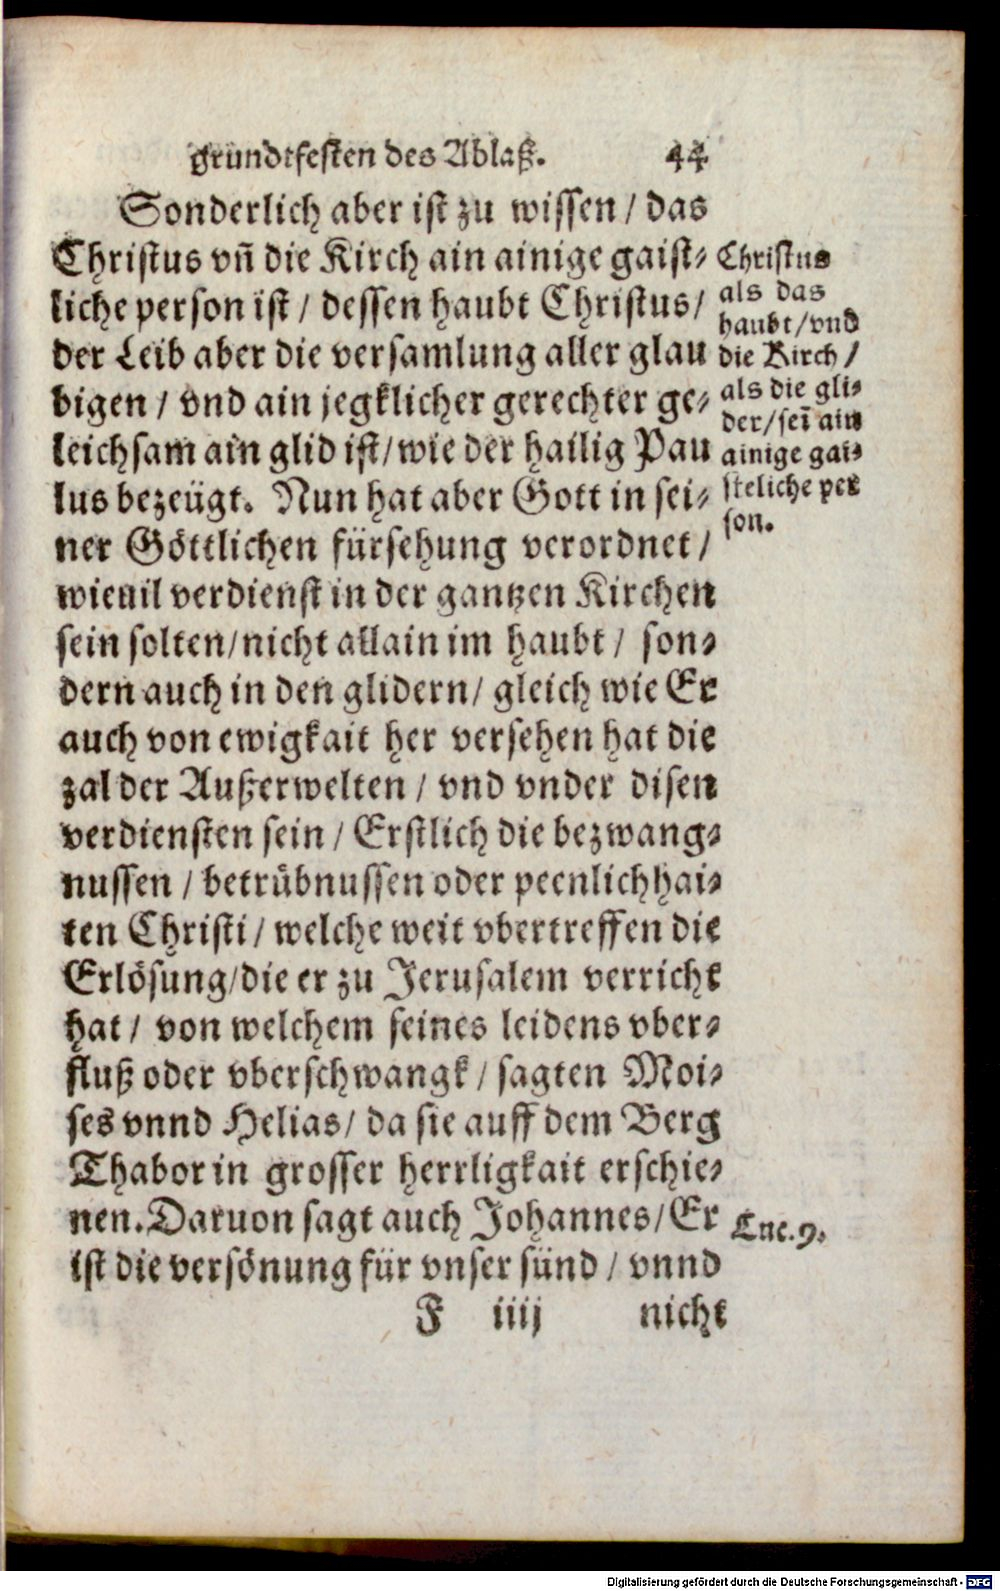 grundtfesten des Ablaß. 44
Sonderlich aber ist zu wissen / das
Christus vñ die Kirch ain ainige gaist-
liche person ist / dessen haubt Christus /
der Leib aber die versamlung aller glau
bigen / vnd ain jegklicher gerechter ge-
leichsam ain glid ist / wie der hailig Pau
lus bezeügt. Nun hat aber Gott in sei-
ner Göttlichen fürsehung verordnet /
wieuil verdienst in der gantzen Kirchen
sein solten / nicht allain im haubt / son-
dern auch in den glidern / gleich wie Er
auch von ewigkait her versehen hat die
zal der Außerwelten / vnd vnder disen
verdiensten sein / Erstlich die bezwang-
nussen / betrübnussen oder peenlichhai-
ten Christi / welche weit vbertreffen die
Erlösung / die er zu Jerusalem verricht
hat / von welchem seines leidens vber-
fluß oder vberschwangk / sagten Moi-
ses vnnd Helias / da sie auff dem Berg
Thabor in grosser herrligkait erschie-
nen. Daruon sagt auch Johannes / Er
ist die versönung für vnser sünd / vnnd
F iiij nicht
Christus
als das
haubt / vnd
die Kirch /
als die gli-
der / seĩ ain
ainige gai-
steliche per
son.
Luc. 9.
Digitalisierung gefördert durch die Deutsche Forschungsgemeinschaft - DFG